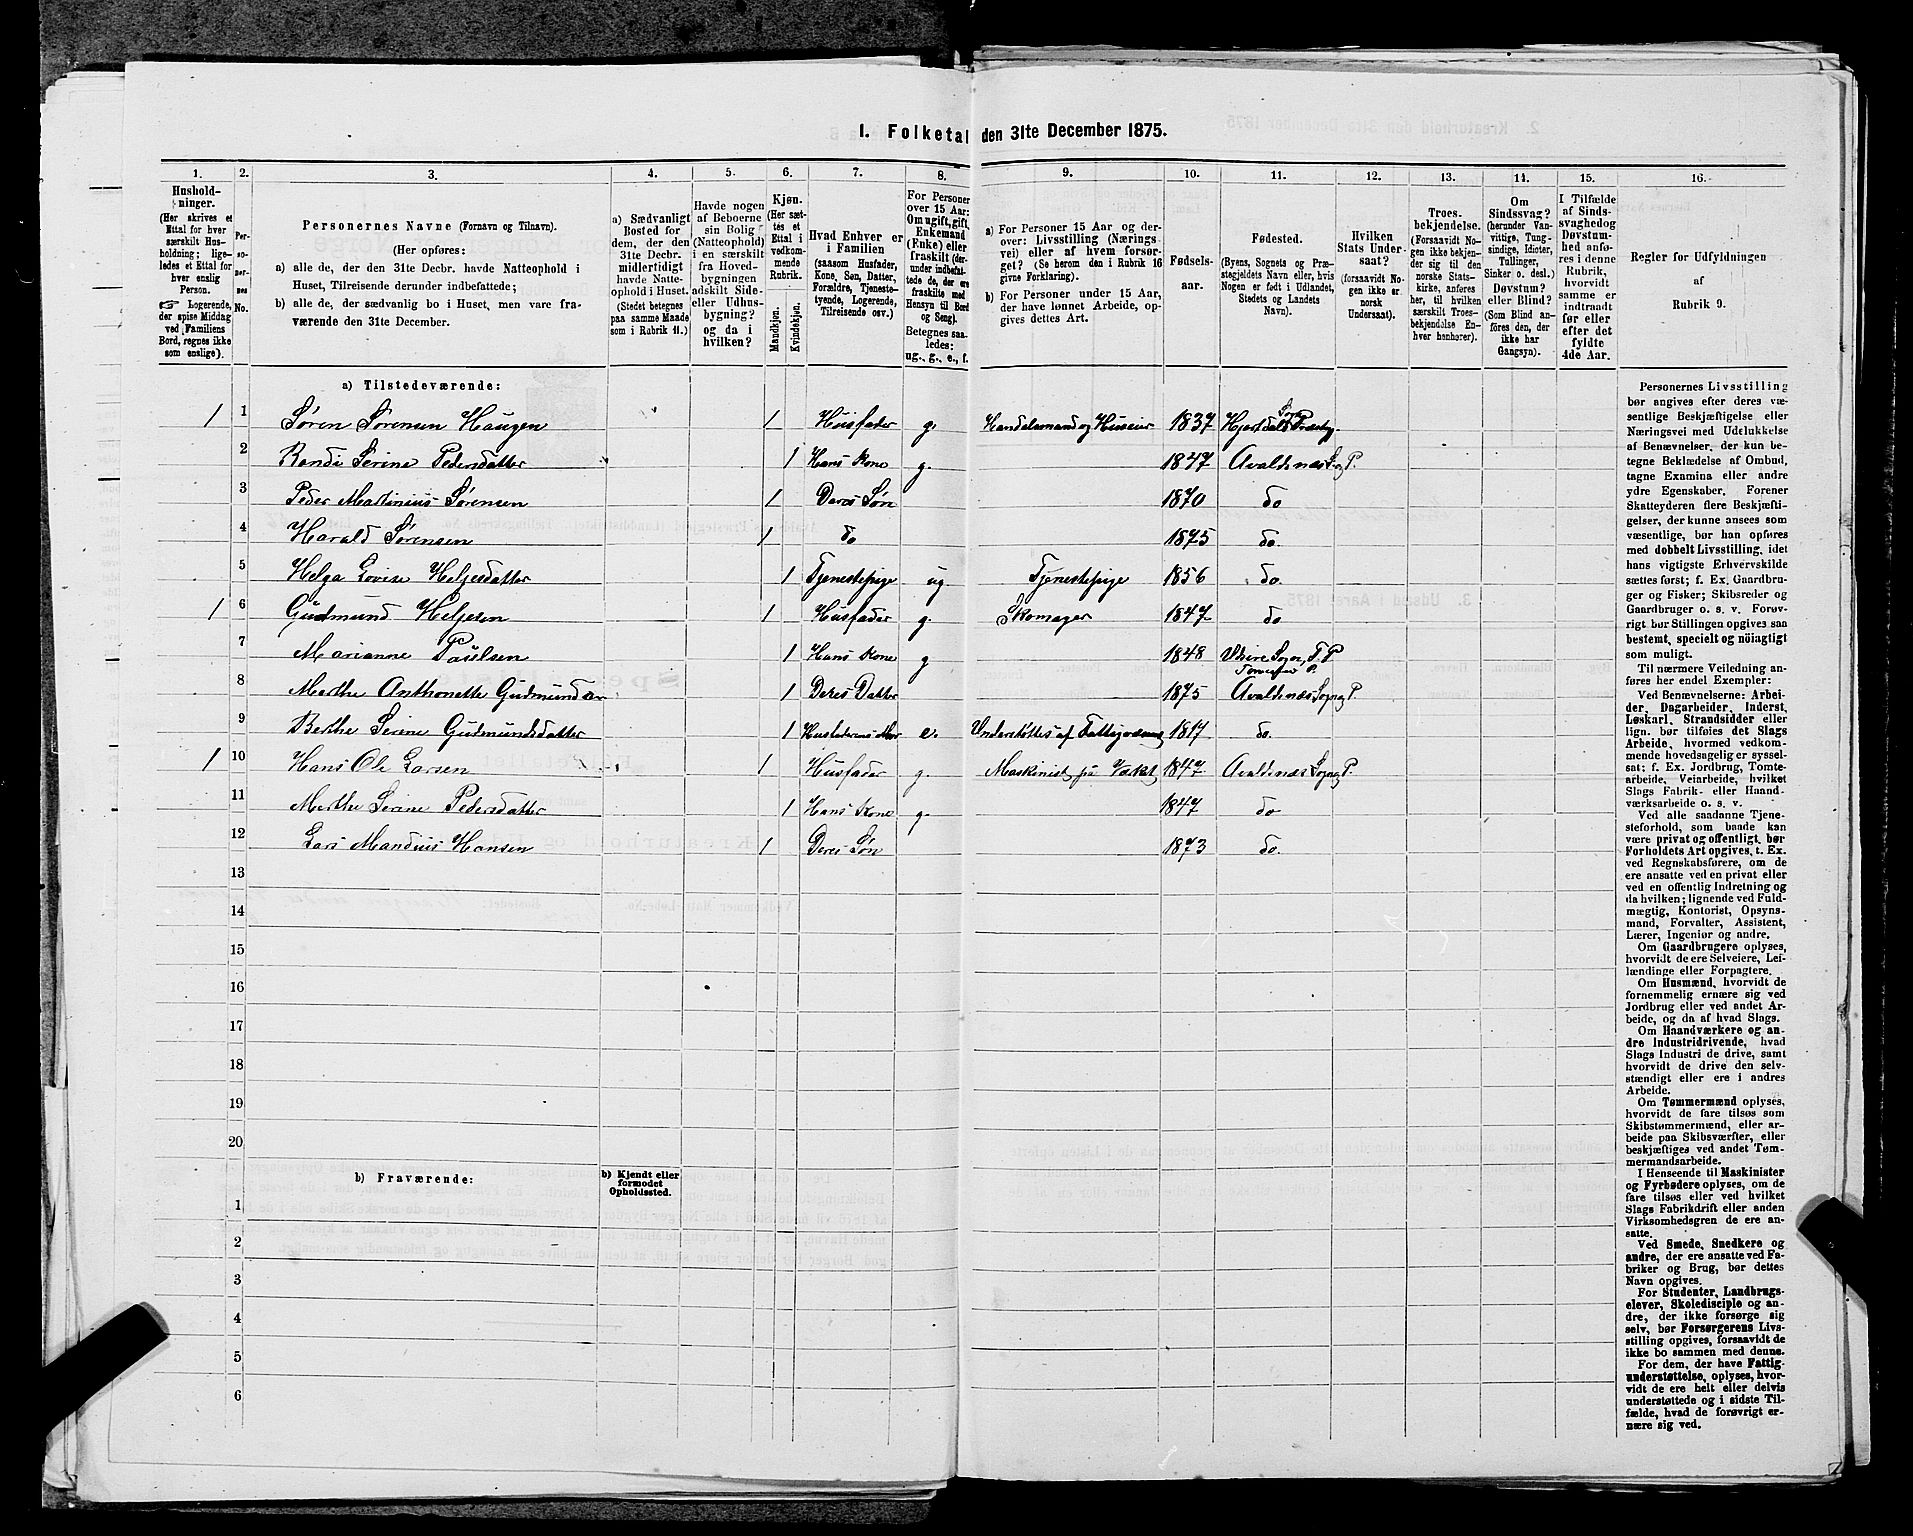 I. Folketal den 31te December 1875.
1. 2. 3. 4. 5. 6. 7. 8. 9. 10. 11. 12. 13. 14. 15. 16.
Hushold-
ninger.
(Her skrives et
Ettal for hver
særskilt Hus-
holdning; lige-
ledes et Ettal for
hver enslig
Person.
☞ Logerende,
der spise Middag
ved Familiens
Bord, regnes ikke
som enslige).
Per-
so-
ner-
nes
No.
Personernes Navne (Fornavn og Tilnavn).
(Her opføres:
a) alle de, der den 31te Decbr. havde Natteophold i
Huset, Tilreisende derunder indbefattede;
b) alle de, der sædvanlig bo i Huset, men vare fra-
værende den 31te December.
a) Sædvanligt
Bosted for
dem, der den
31te Decbr.
midlertidigt
havde Natte-
ophold i Huset.
(Stedet betegnes
paa samme Maade
som i Rubrik 11.)
Havde nogen
af Beboerne
sin Bolig
(Natteophold)
i en særskilt
fra Hoved-
bygningen
adskilt Side-
eller Udhus-
bygning?
og da i
hvilken?
Kjøn.
(Her sæt-
tes et
Ettal i
vedkom-
mende
Rubrik.
Mandkjøn.
Kvindekjøn.
Hvad Enhver er
i Familien
(saasom Husfader,
Kone, Søn, Datter,
Forældre, Tjeneste-
tyende, Logerende,
Tilreisende osv.)
For Personer
over 15 Aar:
Om ugift, gift,
Enkemand
(Enke) eller
fraskilt (der-
under indbefat-
tede de, der ere
fraskilte med
Hensyn til Bord
og Seng).
Betegnes saa-
ledes:
ug., g., e., f.
a) For Personer 15 Aar og der-
over: Livsstilling (Nærings
vei) eller af hvem forsør-
get? (Se herom den i Rubrik 16
givne Forklaring).
b) For Personer under 15 Aar,
der have lønnet Arbeide, op-
gives dettes Art.
Fødsels-
aar.
Fødested.
(Byens, Sognets og Præ-
stegjeldets Navn eller, hvis
Nogen er født i Udlandet,
Stedets og Landets
Navn).
Hvilken
Stats Under-
saat?
(forsaavidt No-
gen ikke er
norsk
Undersaat).
Troes-
bekjendelse.
(Forsaavidt No-
gen ikke bekjen-
der sig til den
norske Stats-
kirke, anføres
her, til hvilken
særskilt Troes-
bekjendelse En-
hver henhører).
Om
Sindssvag?
(herunder Van-
vittige, Tung-
sindige, Idioter,
Tullinger,
Sinker o. desl.)
Døvstum?
eller Blind?
(Som Blind an-
føres den, der
ikke har
Gangsyn).
I Tilfælde
af Sinds-
svaghedog
Døvstum-
hed anfø-
res i denne
Rubrik,
hvorvidt
samme er
indtraadt
før eller
efter det
fyldte
4de Aar.
Regler for Udfyldningen
af
Rubrik 9.
a) Tilstedeværende:
1 1 Søren Sørensen Haugen 1 Husfader g. Handelsmand og Huseier 1837 Hjertdals Sogn Præstg
2 Randi Serine Pedersdatter 1 Hans Kone g. 1847 Avaldsnæs S og P.
3 Peder Martinius Sørensen 1 Deres Søn 1870 do
4 Harald Sørensen 1 do 1875 do.
5 Helga Lovise Helgesdatter 1 Tjenestepige ug Tjenestepige 1856 do.
1 6 Gudmund Helgesen 1 Husfader g. Skomager 1847 do
7 Marianne Paulsen 1 Hans Kone g 1848 Utsire Sogn, T. P
8 Marthe Anthonette Gudmundsen 1 Deres Datter 1875 Avaldsnæs Sogn og P.
9 Berthe Serine Gudmundsdatter 1 Husfaderens Mor e. Understøttes af Fattigvæsenet 1817 do.
1 10 Hans Ole Larsen 1 Husfader g. Maskinist på Værket 1847 Avaldsnæs Sogn og P.
11 Marthe Serine Pedersdatter 1 Hans Kone g. 1847 do
12 Lars Mandius Hansen 1 Deres Søn 1873 do.
13
14
15
16
17
18
19
20
b) Fraværende:
b) Kjendt eller
formodet
Opholdssted.
1
2
3
4
5
6
Personernes Livsstilling
bør angives efter deres væ-
sentlige Beskjæftigelse eller
Næringsvei med Udelukkelse
af Benævnelser, der kun be-
tegne Beklædelse af Ombud,
tagne Examina eller andre
ydre Egenskaber. Forener
Skatteyderen flere Beskjæfti-
gelser, der kunne ansees som
væsentlige, bør han opføres
med dobbelt Livsstilling, idet
hans vigtigste Erhvervskilde
sættes først; f. Ex. Gaardbru-
ger og Fisker; Skibsreder og
Gaardbruger o. s. v. Forøv-
rigt bør Stillingen opgives saa
bestemt, specielt og nöiagtigt
som muligt.
Til nærmere Veiledning an-
føres her endel Exempler:
Ved Benævnelserne: Arbei-
der, Dagarbeider, Inderst,
Løskarl, Strandsidder eller
lign. bør tilføies det Slags
Arbeide, hvormed vedkom-
mende hovedsagelig er syssel-
sat; f. Ex. Jordbrug, Tomte-
arbeide, Veiarbeide, hvilket
Slags Fabrik- eller Haand-
værksarbeide o. s. v.
Ved alle saadanne Tjene-
steforhold, som baade kan
være privat og offentligt, bør
Forholdets Art opgives, t. Ex.
ved Regnskabsførere, om de
ere ansatte ved en privat eller
ved en offentlig Indretning og
da hvilken; lignende ved Fuld-
mægtig, Kontorist, Opsyns-
mand, Forvalter, Assistent,
Lærer, Ingeniør og andre.
Om Gaardbrugere oplyses,
hvorvidt de ere Selveiere, Lei-
lændinge eller Forpagtere.
Om Husmænd, hvorvidt de
fornemmelig ernære sig ved
Jordbrug eller ved andet Ar-
beide, og da af hvad Slags.
Om Haandværkere og an-
dre Industridrivende, hvad
Slags Industri de drive, samt
hvorvidt de drive den selv-
stændigt eller ere i andres
Arbeide.
Om Tømmermænd oplyses,
hvorvidt de fare tilsøs som
Skibstømmermænd, eller ar-
beide paa Skibsværfter, eller
beskjæftiges ved andet Tøm-
mermandsarbeide.
I Henseende til Maskinister
og Fyrbødere oplyses, om de
fare tilsøs eller ved hvilket
Slags Fabrikdrift eller anden
Virksomhedsgren de ere an-
satte.
Ved Smede, Snedkere og
andre, der ere ansatte ved Fa-
briker og Brug, bør dettes
Navn opgives.
For Studenter, Landbrugs-
elever, Skoledisciple og an-
dre, der ikke forsørge sig
selv, bør Forsørgerens Livs-
stilling opgives, forsaavidt de
ikke bo sammen med denne.
For dem, der have Fattig-
understøttelse, oplyses, hvor-
vidt de ere helt eller delvis
understøttede og i sidste Til-
fælde, hvad de forøvrigt er-
nære sig ved.